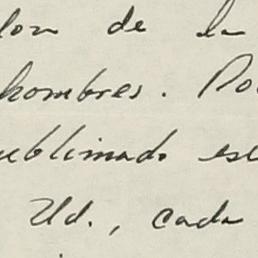 de la
hombres. Po
ublimado es
Ud., cada